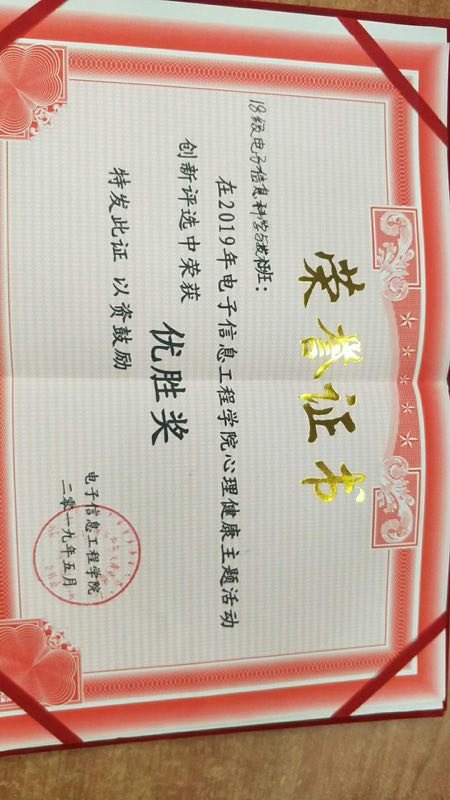 荣誉证书
18级电子信息科学与技术班：
在2019年电子信息工程学院心理健康主题活动
创新评选中荣获
优胜奖
特发此证 以资鼓励
电子信息工程学院
二零一九年五月